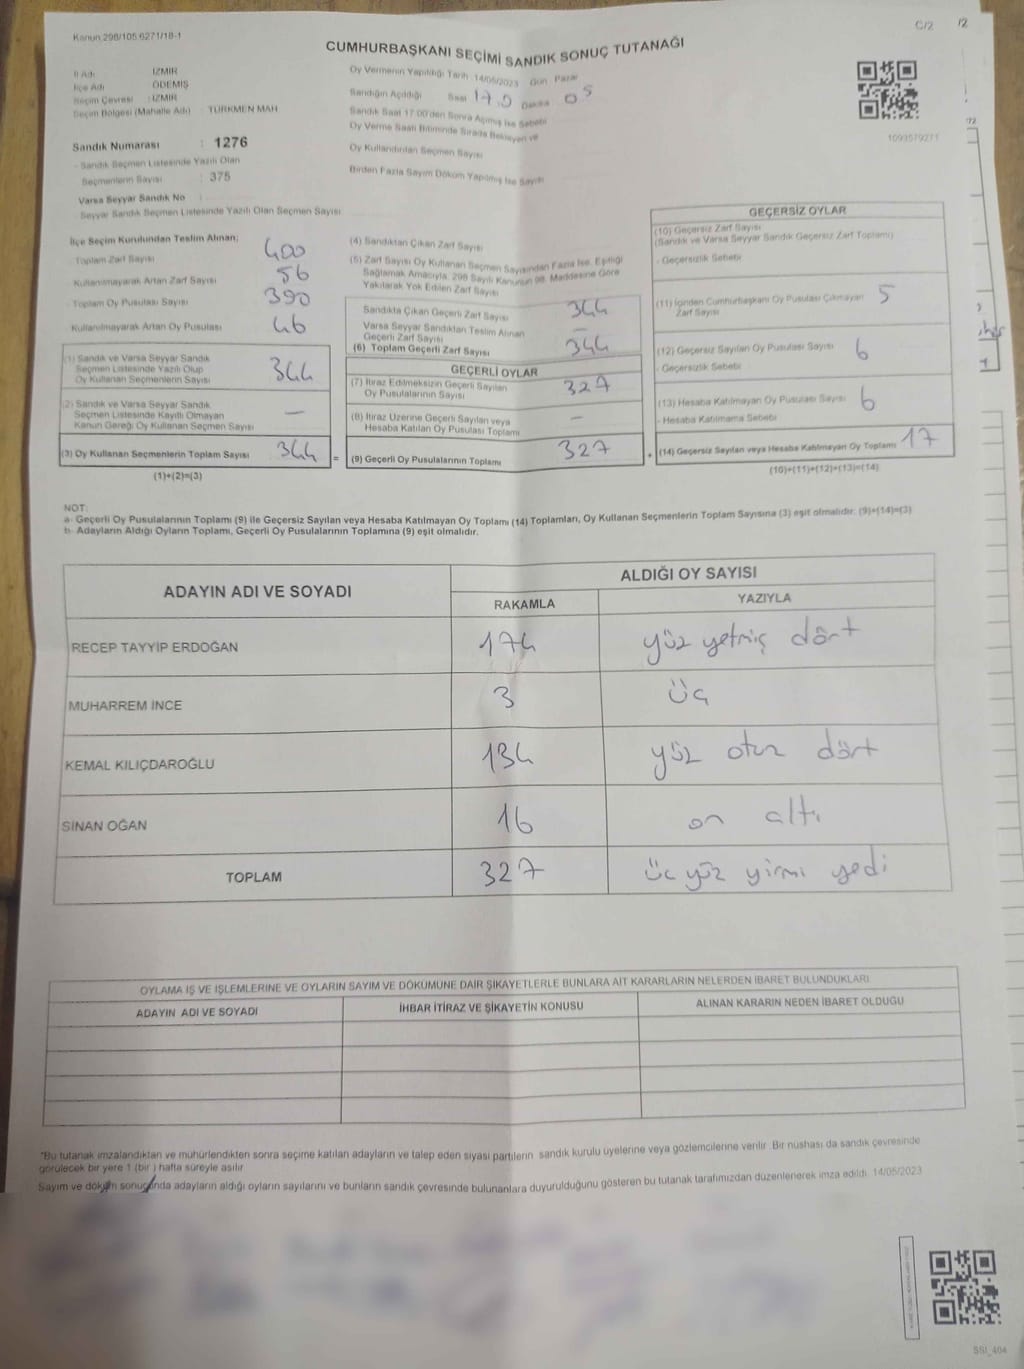 Kanun 298/105 6271/18-1
C/2
/2
CUMHURBAŞKANI SEÇİMİ SANDIK SONUÇ TUTANAĞI
İl Adı : İZMİR
İlçe Adı : ÖDEMİŞ
Seçim Çevresi : İZMİR
Seçim Bölgesi (Mahalle Adı) : TÜRKMEN MAH
Sandık Numarası : 1276
- Sandık Seçmen Listesinde Yazılı Olan
Seçmenlerin Sayısı : 375
Varsa Seyyar Sandık No :
- Seyyar Sandık Seçmen Listesinde Yazılı Olan Seçmen Sayısı
Oy Vermenin Yapıldığı Tarih 14/05/2023 Gün Pazar
Sandığın Açıldığı Saat 17.0 Dakika 05
Sandık Saat 17:00'den Sonra Açılmış İse Sebebi
Oy Verme Saati Bitiminde Sırada Bekleyen ve
Oy Kullandırılan Seçmen Sayısı
Birden Fazla Sayım Döküm Yapılmış İse Sayısı
1093579271
İlçe Seçim Kurulundan Teslim Alınan;
Toplam Zarf Sayısı 400
Kullanılmayarak Artan Zarf Sayısı 56
Toplam Oy Pusulası Sayısı 390
Kullanılmayarak Artan Oy Pusulası 46
(1) Sandık ve Varsa Seyyar Sandık
Seçmen Listesinde Yazılı Olup
Oy Kullanan Seçmenlerin Sayısı 344
(2) Sandık ve Varsa Seyyar Sandık
Seçmen Listesinde Kayıtlı Olmayan
Kanun Gereği Oy Kullanan Seçmen Sayısı —
(3) Oy Kullanan Seçmenlerin Toplam Sayısı 344 =
(1)+(2)=(3)
(4) Sandıktan Çıkan Zarf Sayısı
(5) Zarf Sayısı Oy Kullanan Seçmen Sayısından Fazla İse, Eşitliği
Sağlamak Amacıyla, 298 Sayılı Kanunun 98. Maddesine Göre
Yakılarak Yok Edilen Zarf Sayısı
Sandıkta Çıkan Geçerli Zarf Sayısı 344
Varsa Seyyar Sandıktan Teslim Alınan
Geçerli Zarf Sayısı —
(6) Toplam Geçerli Zarf Sayısı 344
GEÇERLİ OYLAR
(7) İtiraz Edilmeksizin Geçerli Sayılan
Oy Pusulalarının Sayısı 327
(8) İtiraz Üzerine Geçerli Sayılan veya
Hesaba Katılan Oy Pusulası Toplamı —
(9) Geçerli Oy Pusulalarının Toplamı 327 +
GEÇERSİZ OYLAR
(10) Geçersiz Zarf Sayısı
(Sandık ve Varsa Seyyar Sandık Geçersiz Zarf Toplamı)
- Geçersizlik Sebebi
(11) İçinden Cumhurbaşkanı Oy Pusulası Çıkmayan
Zarf Sayısı 5
(12) Geçersiz Sayılan Oy Pusulası Sayısı 6
- Geçersizlik Sebebi
(13) Hesaba Katılmayan Oy Pusulası Sayısı 6
- Hesaba Katılmama Sebebi
(14) Geçersiz Sayılan veya Hesaba Katılmayan Oy Toplamı 17
(10)+(11)+(12)+(13)=(14)
NOT:
a- Geçerli Oy Pusulalarının Toplamı (9) ile Geçersiz Sayılan veya Hesaba Katılmayan Oy Toplamı (14) Toplamları, Oy Kullanan Seçmenlerin Toplam Sayısına (3) eşit olmalıdır. (9)+(14)=(3)
b- Adayların Aldığı Oyların Toplamı, Geçerli Oy Pusulalarının Toplamına (9) eşit olmalıdır.
ADAYIN ADI VE SOYADI
ALDIĞI OY SAYISI
RAKAMLA YAZIYLA
RECEP TAYYİP ERDOĞAN 174 yüz yetmiş dört
MUHARREM İNCE 3 üç
KEMAL KILIÇDAROĞLU 134 yüz otuz dört
SİNAN OĞAN 16 on altı
TOPLAM 327 üç yüz yirmi yedi
OYLAMA İŞ VE İŞLEMLERİNE VE OYLARIN SAYIM VE DÖKÜMÜNE DAİR ŞİKAYETLERLE BUNLARA AİT KARARLARIN NELERDEN İBARET BULUNDUKLARI
ADAYIN ADI VE SOYADI İHBAR İTİRAZ VE ŞİKAYETİN KONUSU ALINAN KARARIN NEDEN İBARET OLDUĞU
*Bu tutanak imzalandıktan ve mühürlendikten sonra seçime katılan adayların ve talep eden siyasi partilerin sandık kurulu üyelerine veya gözlemcilerine verilir. Bir nüshası da sandık çevresinde
görülecek bir yere 1 (bir ) hafta süreyle asılır.
Sayım ve döküm sonucunda adayların aldığı oyların sayılarını ve bunların sandık çevresinde bulunanlara duyurulduğunu gösteren bu tutanak tarafımızdan düzenlenerek imza edildi. 14/05/2023
SSI_404